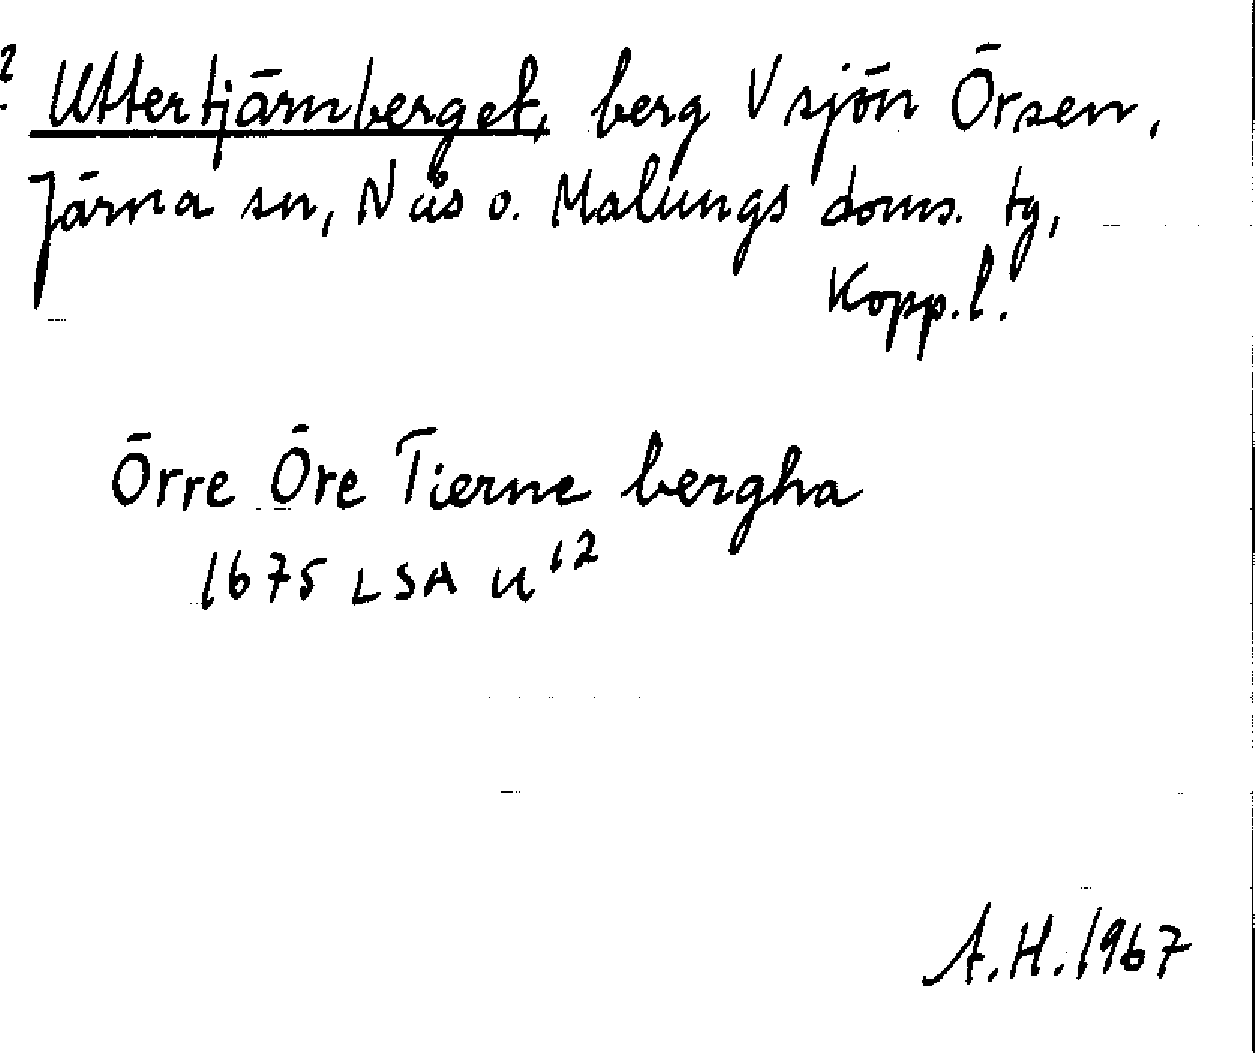 ? Uttertjärnberget, berg V sjön Örsen,
Järna sn, Nås o. Malungs doms. tg,
Kopp.l.
Örre Öre Tierne bergha
1675 LSA U¹²
A.H. 1967